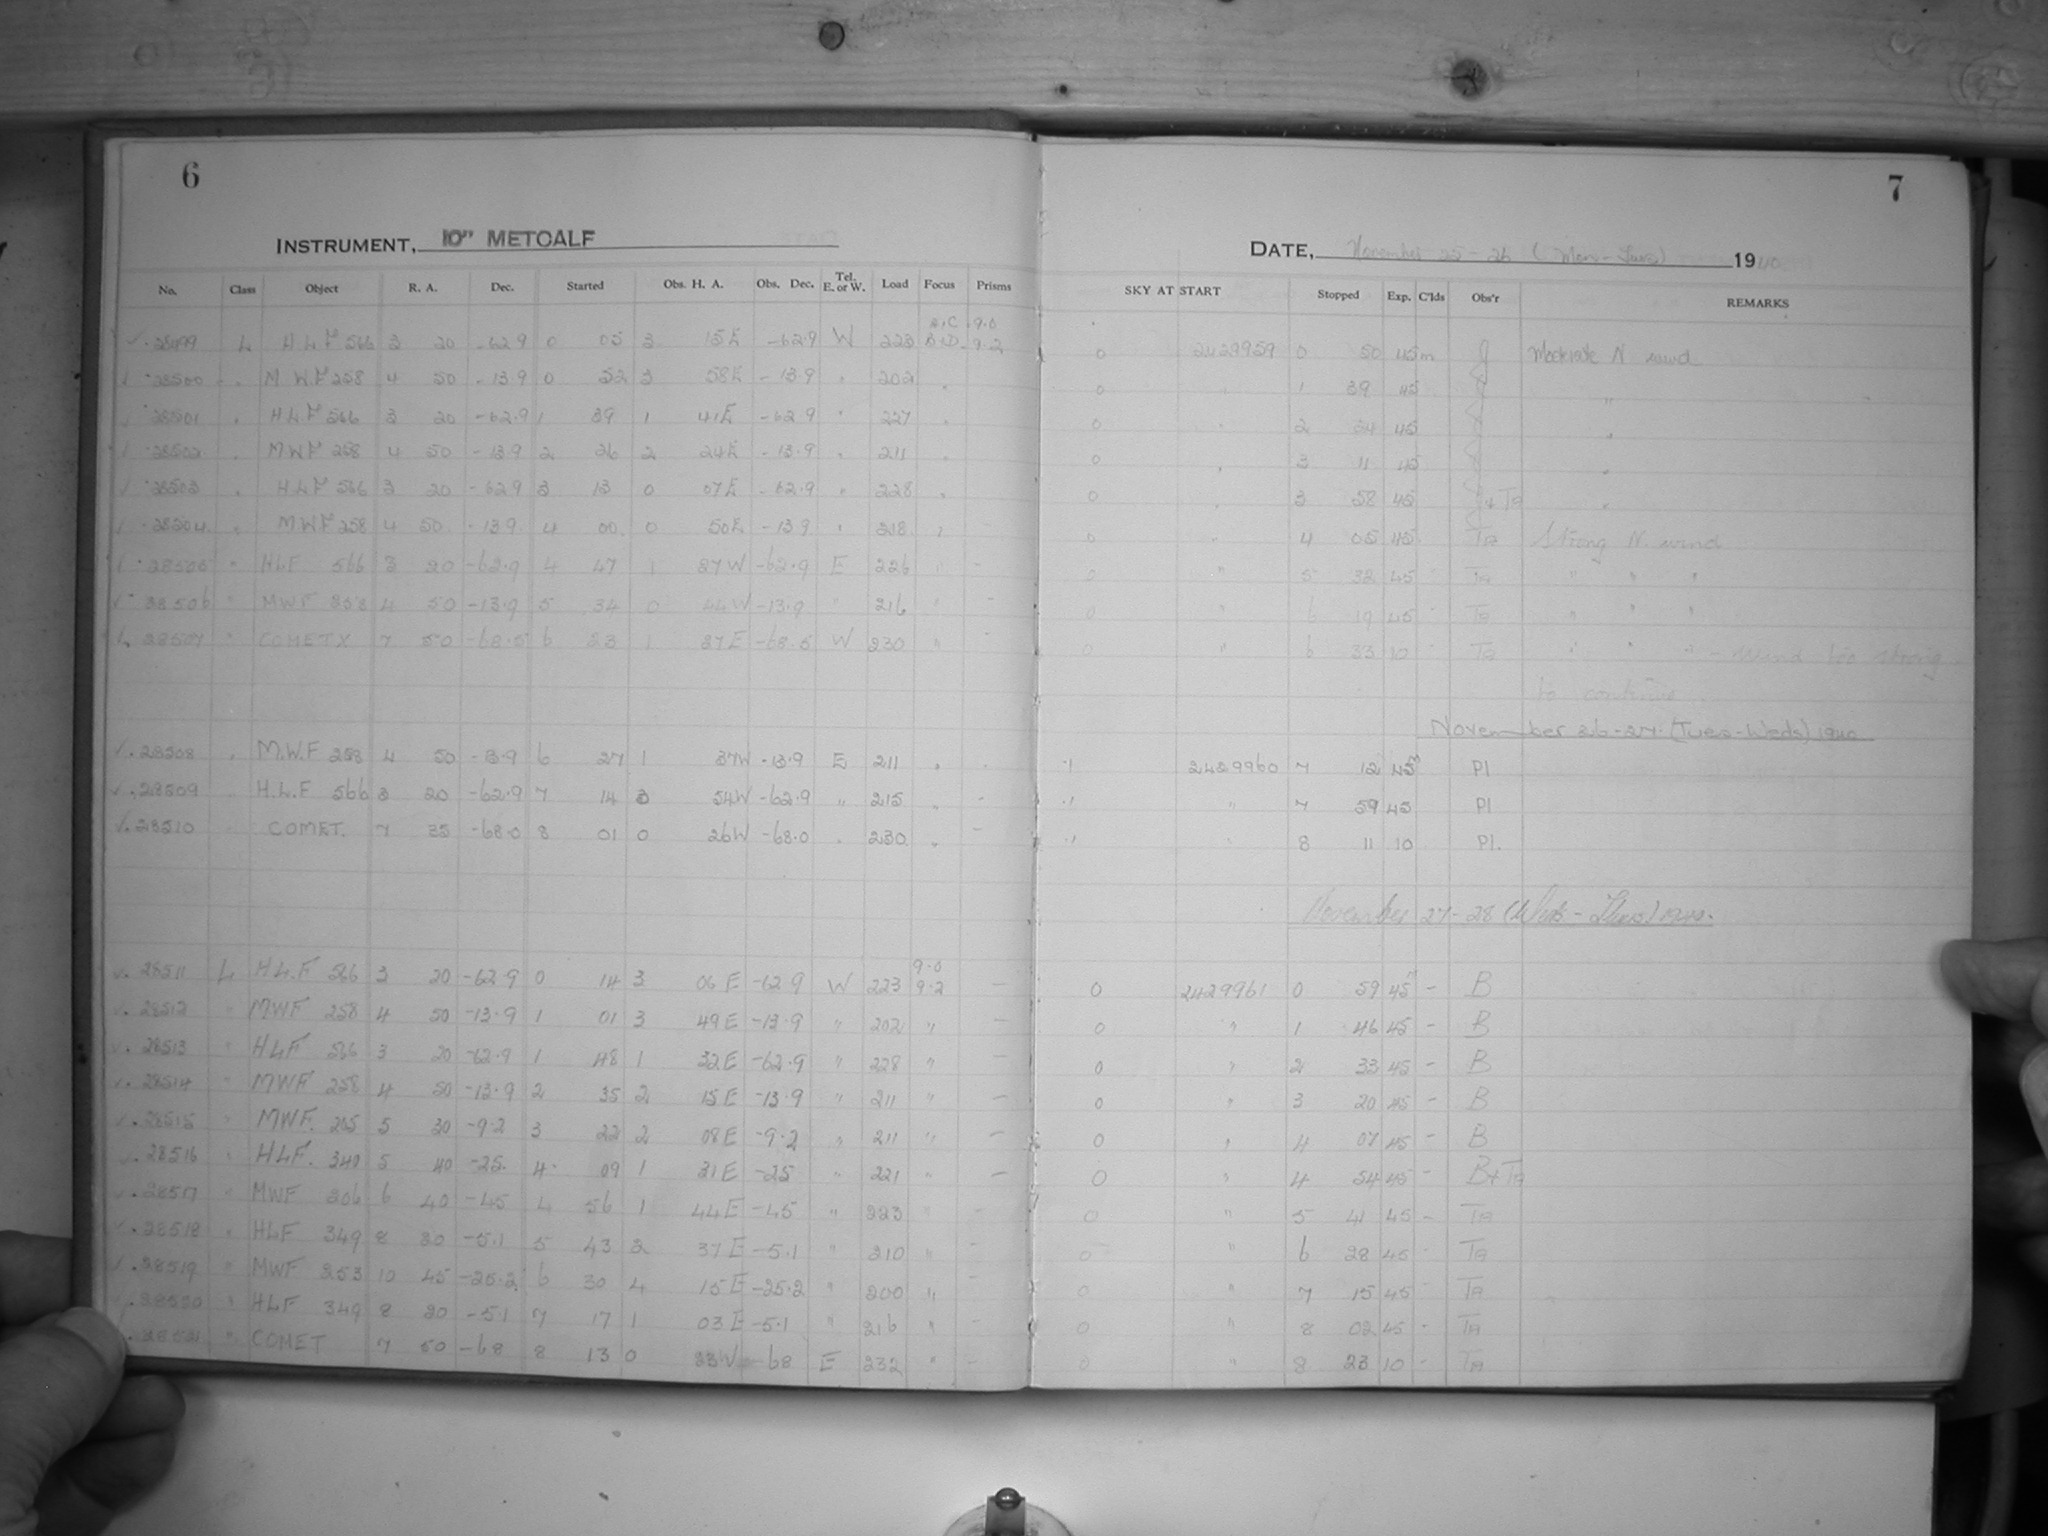 6
INSTRUMENT, 10" METCALF
No. Class Object R. A. Dec. Started Obs. H. A. Obs. Dec. Tel. E. or W. Load Focus Prisms
28499 L HLF 566 3 20 -62.9 0 05 3 15E -62.9 W 223 A,C 9.0 B,D 9.2
28500 " M.W.F 258 4 50 -13.9 0 52 3 58E -13.9 " 202 "
28501 " H.L.F 566 3 20 -62.9 1 39 1 41E -62.9 " 227 "
28502 " M.W.F 258 4 50 -13.9 2 26 2 24E -13.9 " 211 "
28503 " HLF 566 3 20 -62.9 3 13 0 07E -62.9 " 228 "
28504 " M.W.F 258 4 50 -13.9 4 00 0 50E -13.9 " 218 "
28505 " HLF 566 3 20 -62.9 4 47 1 27W -62.9 E 226 " -
28506 " MWF 258 4 50 -13.9 5 34 0 44W -13.9 " 216 " -
28507 " COMET X 7 50 -68.5 6 23 1 27E -68.5 W 230 " -
28508 " M.W.F 258 4 50 -13.9 6 27 1 37W -13.9 E 211 " -
28509 " H.L.F 566 3 20 -62.9 7 14 3 54W -62.9 " 215 " -
28510 COMET. 7 35 -68.0 8 01 0 26W -68.0 " 230 " -
28511 L HLF 566 3 20 -62.9 0 14 3 06E -62.9 W 223 9.0 9.2 -
28512 " MWF 258 4 50 -13.9 1 01 3 49E -13.9 " 202 " -
28513 " HLF 566 3 20 -62.9 1 48 1 32E -62.9 " 228 " -
28514 " MWF 258 4 50 -13.9 2 35 2 15E -13.9 " 211 " -
28515 " MWF. 205 5 30 -9.2 3 22 2 08E -9.2 " 211 " -
28516 " HLF. 340 5 40 -25. 4 09 1 31E -25 " 221 " -
28517 " MWF 206 6 40 -45 4 56 1 44E -45 " 223 " -
28518 " HLF 349 8 20 -5.1 5 43 2 37E -5.1 " 210 " -
28519 " MWF 253 10 45 -25.2 6 30 4 15E -25.2 " 200 " -
28520 " HLF 349 8 20 -5.1 7 17 1 03E -5.1 " 216 " -
28521 " COMET 7 50 -68 8 13 0 23W -68 E 232 " -
7
DATE, November 25-26 (Mon-Tues) 1940
SKY AT START Stopped Exp. C'lds Obs'r REMARKS
0 2429959 0 50 45m J Moderate N wind
0 " 1 39 45 "
0 " 2 24 45 "
0 " 3 11 45 "
0 " 3 58 45 J+TB "
0 " 4 05 45 TB Strong N. wind
0 " 5 32 45 - TB " " "
0 " 6 19 45 - TB " " "
0 " 6 33 10 - TB " " " - wind too strong
to continue
November 26-27. (Tues-Weds) 1940
.1 2429960 7 12 45m Pl
.1 " 7 59 45 Pl
.1 " 8 11 10 Pl.
November 27-28 (Weds-Thurs) 1940.
0 2429961 0 59 45m - B
0 " 1 46 45 - B
0 " 2 33 45 - B
0 " 3 20 45 - B
0 " 4 07 45 - B
0 " 4 54 45 - B+TB
0 " 5 41 45 - TB
0 " 6 28 45 - TB
0 " 7 15 45 TB
0 " 8 02 45 - TB
0 " 8 23 10 - TB